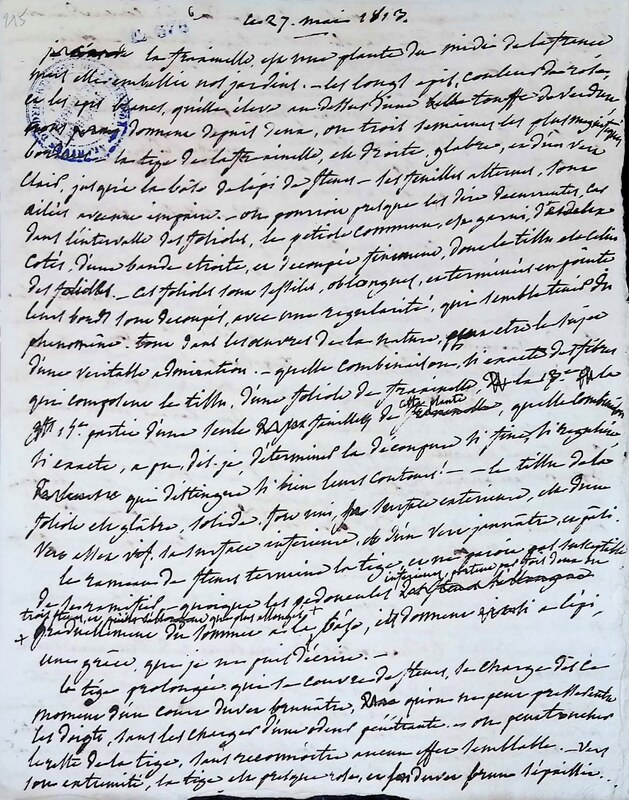 215
ce 27 mai 1813.
la fraxinelle est une plante du midi de la france
mais elle embellit nos jardins. - les longs épis, couleur de rose,
et les épis blancs, qu'elle élève au dessus d'une touffe de verdure
nous donnent depuis deux, ou trois semaines les plus magnifiques
la tige de la fraxinelle, est droite glabre, et d'un verd
clair, jusqu'à la base de l'épi de fleurs - ses feuilles alternes, sont
ailées avec une impaire. - on pourroit presque les dire décurrentes, car
dans l'intervalle des folioles, le petiole commun, est garni, des deux
cotés, d'une bande etroite, et découpée finement, dont le tissu est celui
des folioles. - ces folioles sont sessiles, oblongues, et terminées en pointe
leurs bords sont decoupés, avec une regularité, qui semble tenir du
phenomène. tout dans les œuvres de la nature, peut etre le sujet
d'une veritable admiration. - quelle combinaison, si exacte des fibres
qui composent le tissu, d'une foliole de fraxinelle la 13e la
partie d'une seule feuille de cette plante, quelle combinaison
si exacte, a pu, dis-je, déterminer la découpure si fine, si reguliere
qui distingue si bien leurs contours! - le tissu de la
foliole est glabre, solide, fort uni, sa surface exterieure, est d'un
verd assez vif. sa surface inferieure, est d'un verd jaunâtre, et pâli.
le rameau de fleurs termine la tige, et ne paroit pas susceptible
de se ramifier - quoique les pedoncules inferieurs, portent par fois deux ou
trois fleurs, et plus allongés
graduellement du sommet a la base, et donnent a l'épi,
une grâce, que je ne puis décrire. -
la tige prolongée qui se couvre de fleurs, se charge dès ce
moment d'un coton brunatre, qu'on ne peut presser sous
les doigts, sans les charger d'une odeur pénétrante. - on peut toucher
le reste de la tige, sans reconnoitre aucun effet semblable. - vers
son extremité, la tige est presque rose, et son duvet brun s'épaissit.